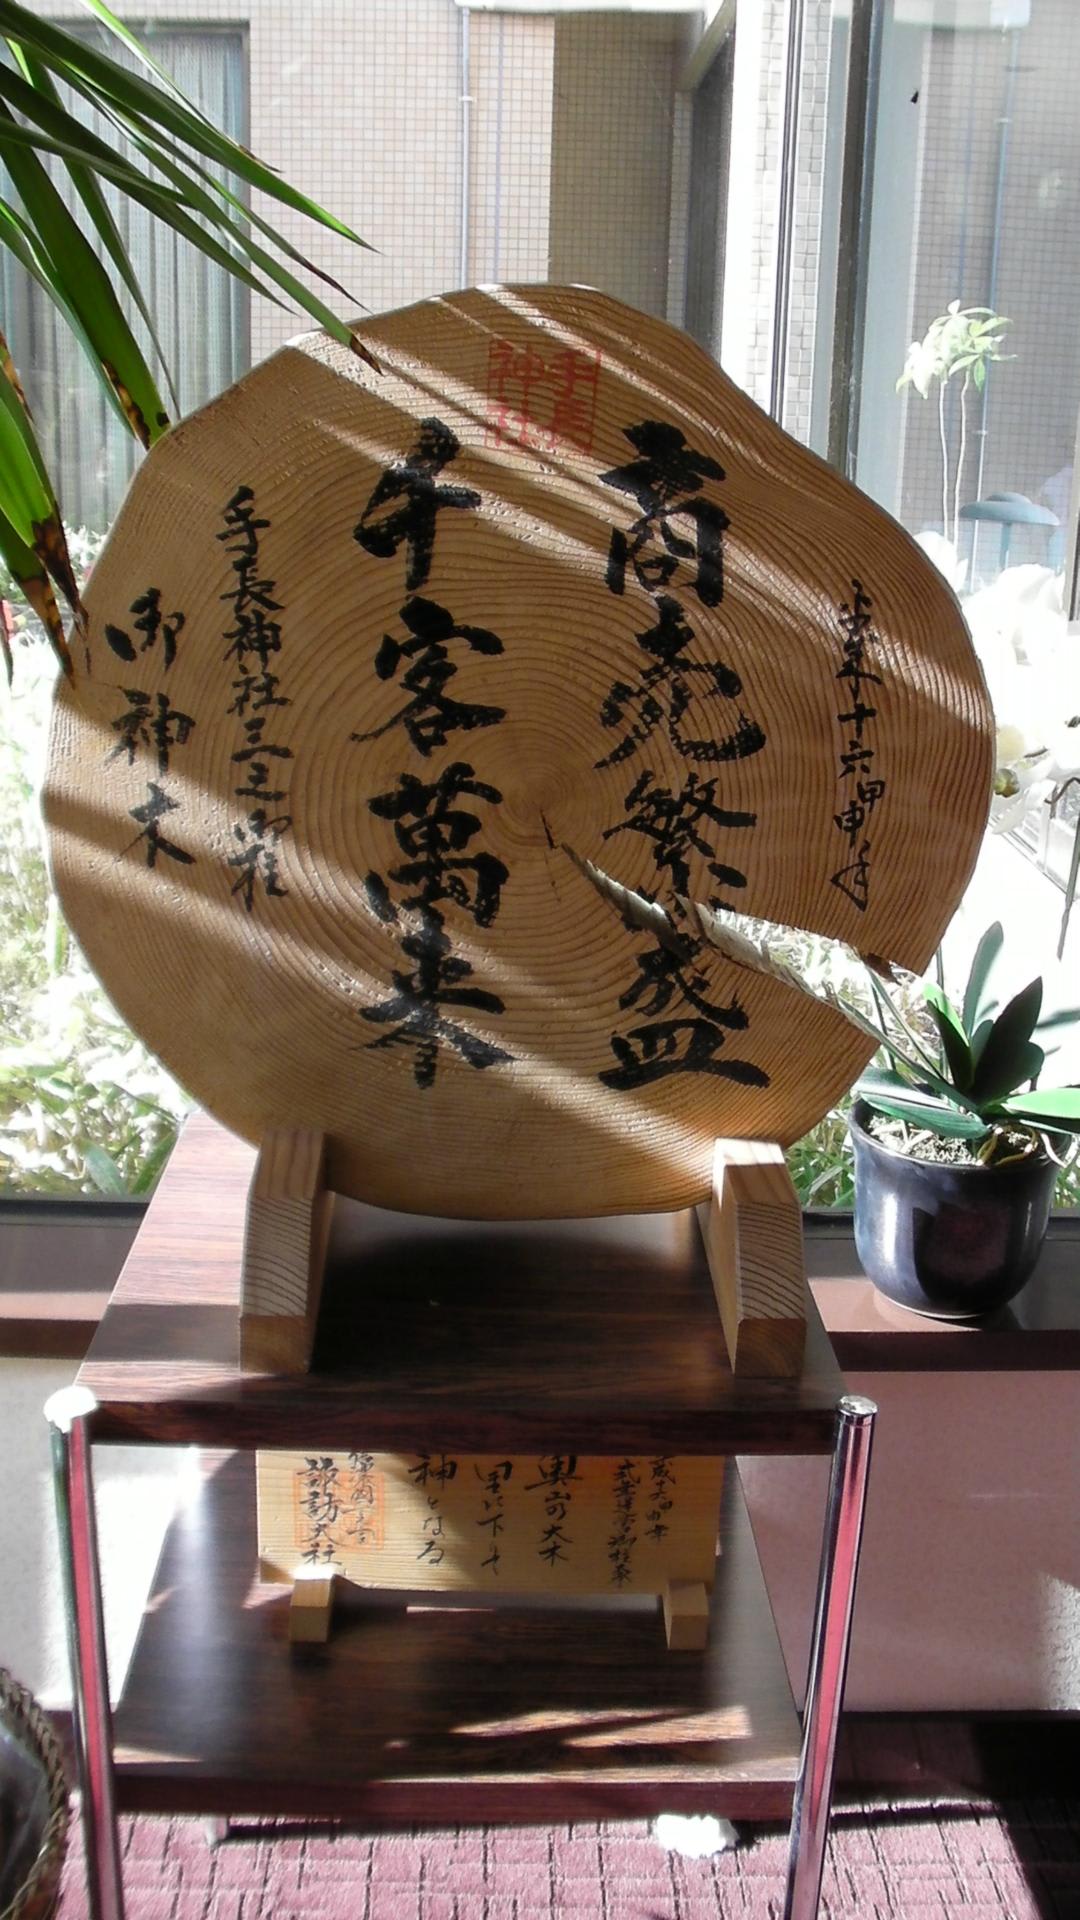 手長
神社
平成十六甲申年
商売繁盛
千客萬来
手長神社三之御柱
御神木
成十六甲申年
式年造営御柱奉
奥山の大木
里に下りて
神となる
諏訪大社